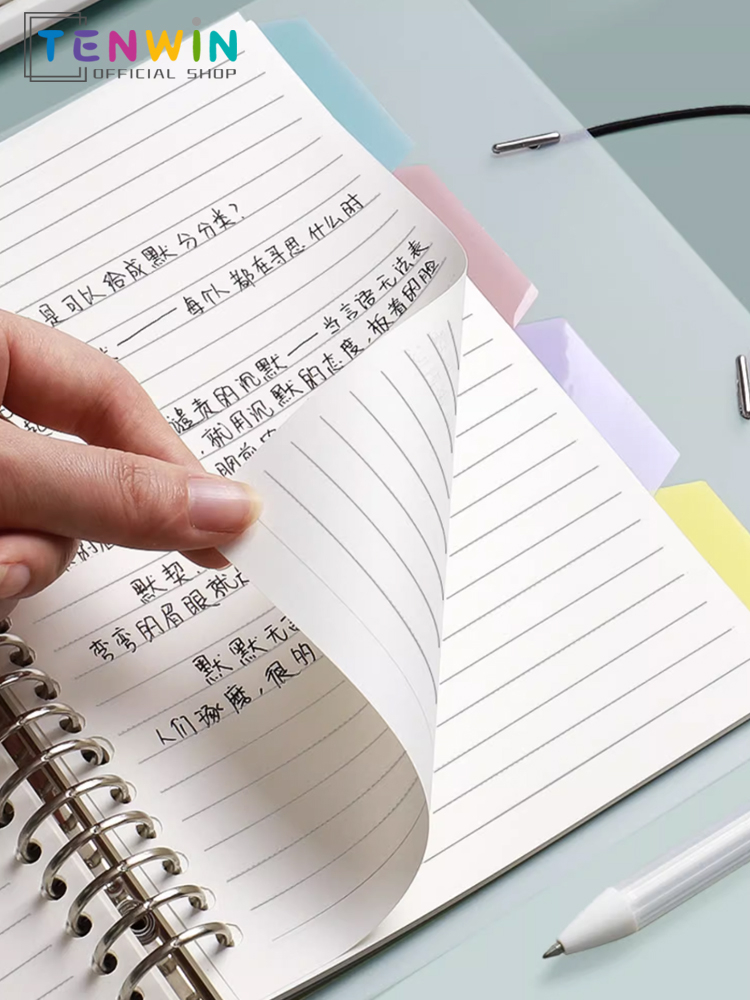 TENWIN
OFFICIAL SHOP
是可以给成默分分类?
——每个人都在寻思什么时
谴责的沉默—当言语无法表
,就用沉默的态度,板着的脸
默契,
弯弯的眉眼就
默默无言
人们琢磨,很的